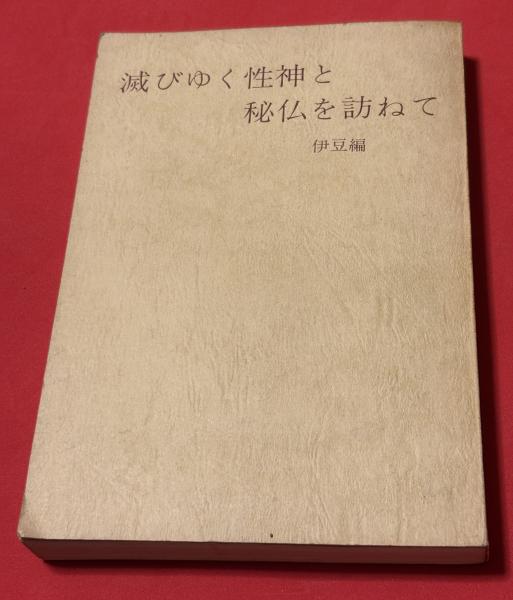 滅びゆく性神と
秘仏を訪ねて
伊豆編